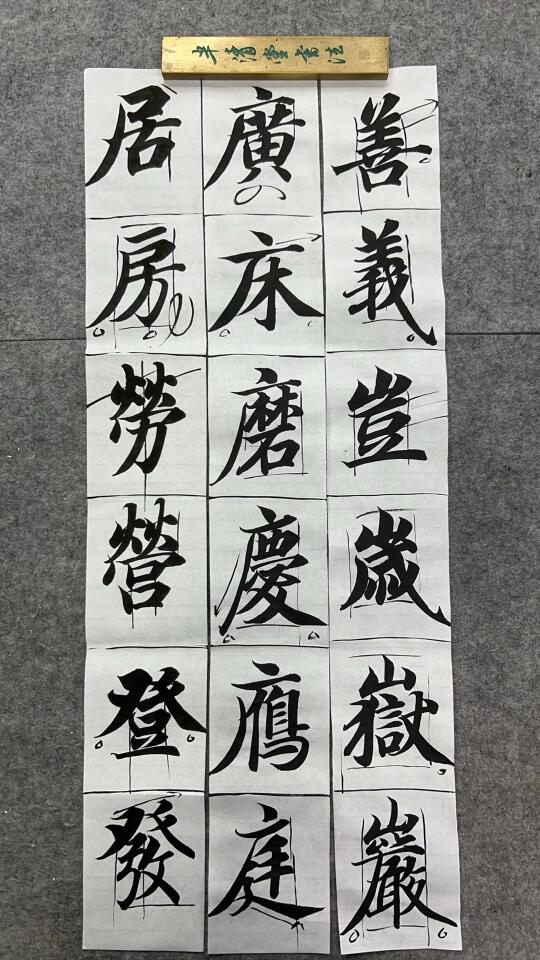 善義豈歲嶽巖
廣床磨慶鷹庭
居房勞營登發